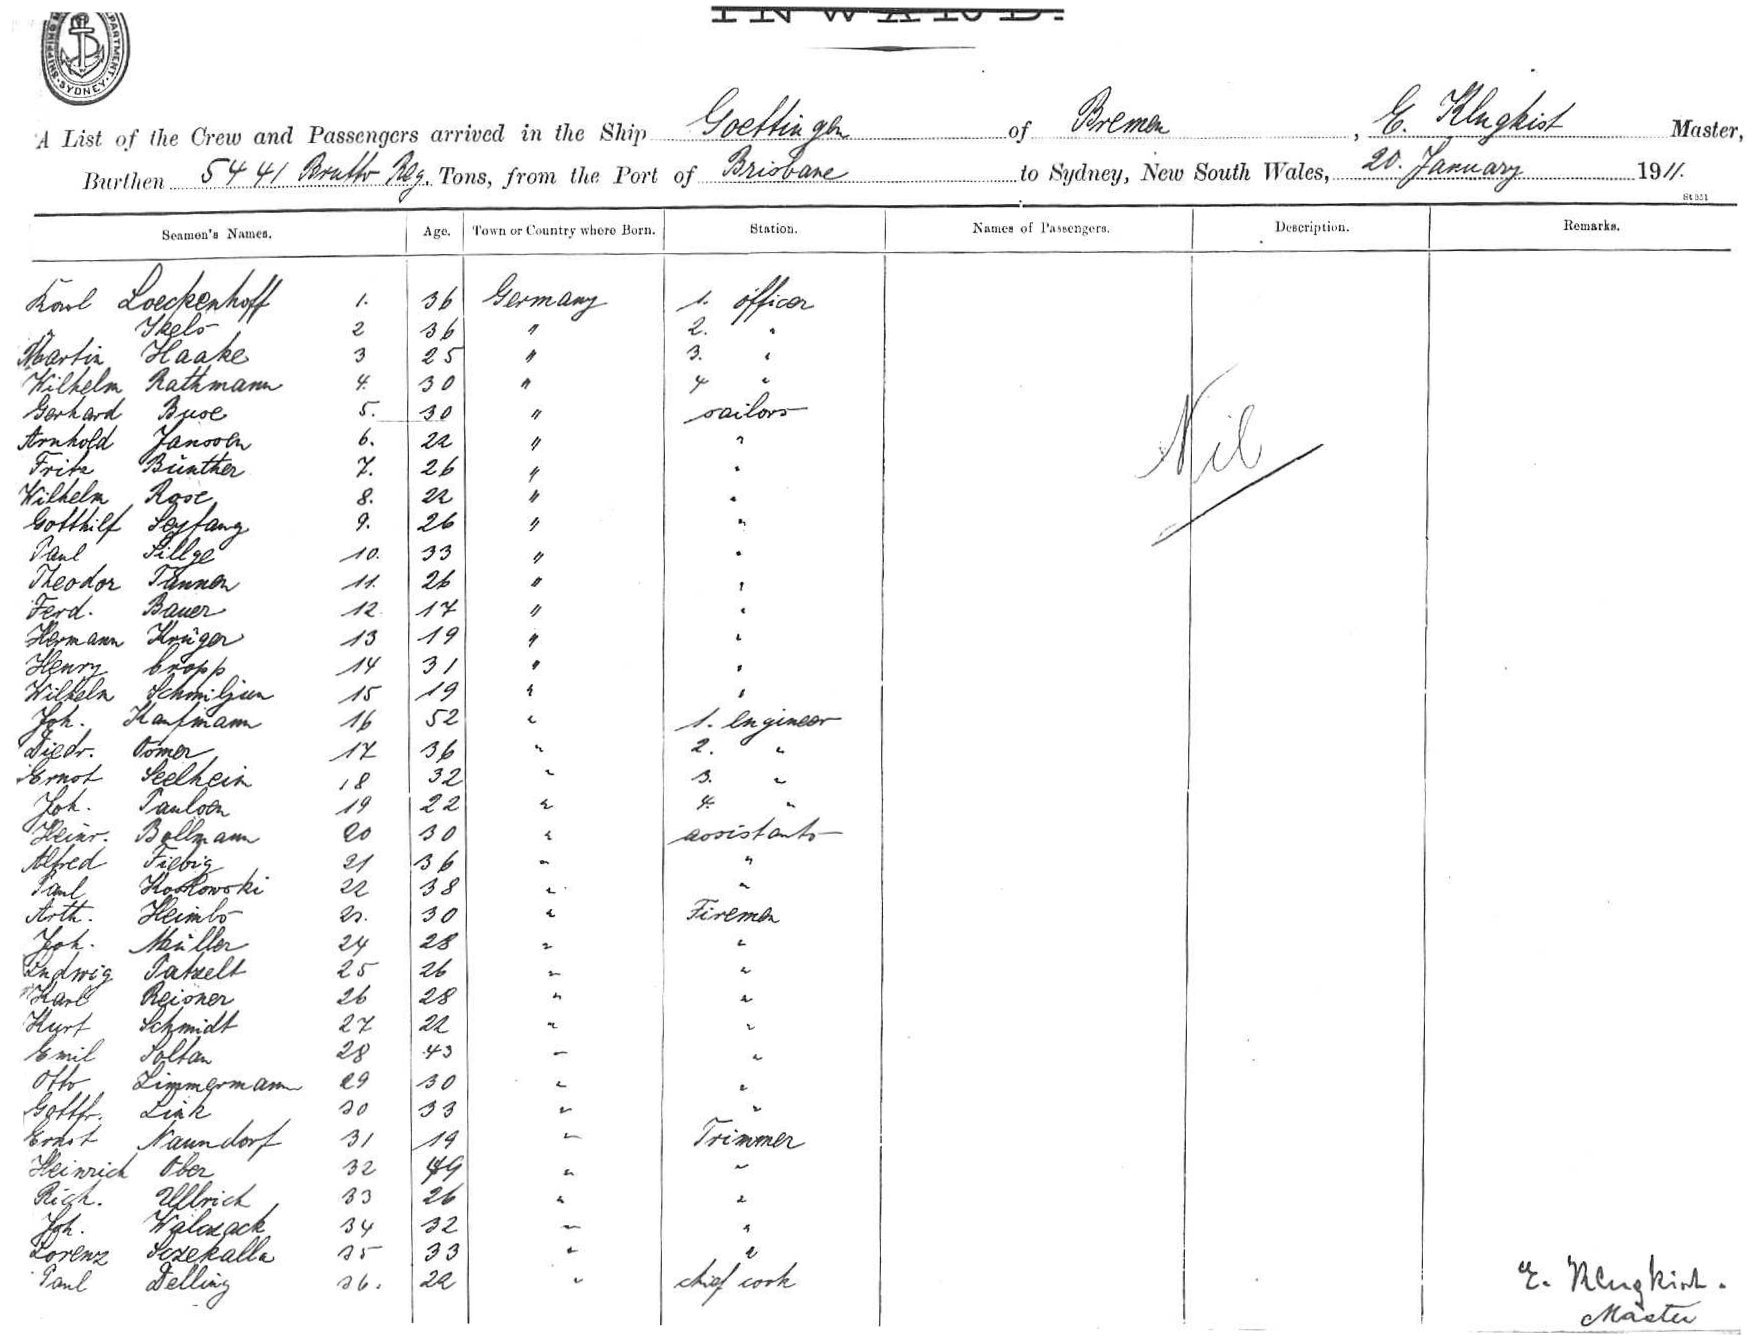 INWARD.
SHIPPING DEPARTMENT. SYDNEY
A List of the Crew and Passengers arrived in the Ship Goettingen of Bremen, E. Klugkist Master,
Burthen 5441 Brutto Reg. Tons, from the Port of Brisbane to Sydney, New South Wales, 20. January 1911.
St 351
Seamen's Names. Age. Town or Country where Born. Station. Names of Passengers. Description. Remarks.
Karl Loeckenhoff 1. 36 Germany 1. officer
Ikels 2 36 " 2. "
Martin Haake 3 25 " 3. "
Wilhelm Rathmann 4. 30 " 4 "
Gerhard Buse 5. 30 " sailors
Arnhold Janssen 6. 22 " "
Fritz Bünther 7. 26 " "
Wilhelm Rose 8. 22 " "
Gotthilf Seyfang 9. 26 " "
Paul Sillge 10. 33 " "
Theodor Tannen 11. 26 " "
Ferd. Bauer 12 17 " "
Hermann Krüger 13 19 " "
Henry Cropp 14 31 " "
Wilhelm 15 19 " "
Joh. Kaufmann 16 52 " 1. engineer
Diedr. Osmer 17 36 " 2. "
Ernst Seelhein 18 32 " 3. "
Joh. Paulsen 19 22 " 4. "
Heinr. Bollmann 20 30 " assistants
Alfred Fiebig 21 36 " "
Paul Koskowski 22 38 " "
Arth. Heimbs 23. 30 " Firemen
Joh. Müller 24 28 " "
Ludwig Patzelt 25 26 " "
Karl Reisner 26 28 " "
Kurt Schmidt 27 22 " "
Emil Soltau 28 43 " "
Otto Zimmermann 29 30 " "
Gottfr. Link 30 33 " "
Ernst Naundorf 31 19 " Trimmer
Heinrich Ober 32 49 " "
Rich. Ullbrich 33 26 " "
Joh. Walczack 34 32 " "
Lorenz Sczekalla 35 33 " "
Paul Delling 36. 22 " chief cook
Nil
E. Klugkist.
Master